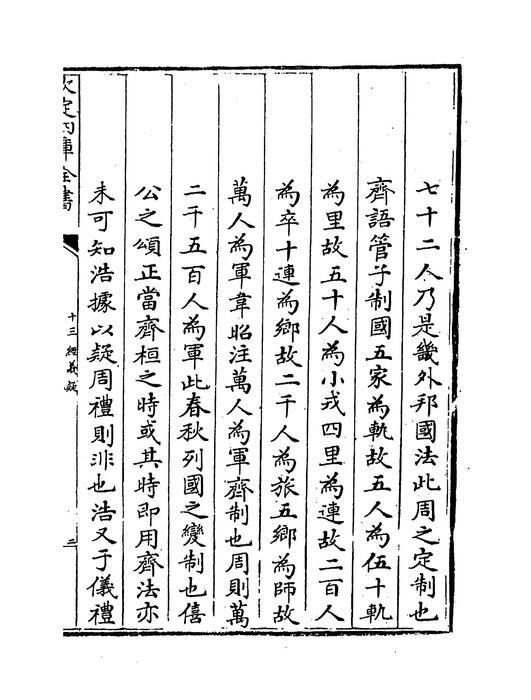 七十二人乃是畿外邦國法此周之定制也
齊語管子制國五家為軌故五人為伍十軌
為里故五十人為小戎四里為連故二百人
為卒十連為鄉故二千人為旅五鄉為師故
萬人為軍韋昭注萬人為軍齊制也周則萬
二千五百人為軍此春秋列國之變制也僖
公之頌正當齊桓之時或其時即用齊法亦
未可知浩據以疑周禮則非也浩又于儀禮
欽定四庫全書
十三經義疑
三